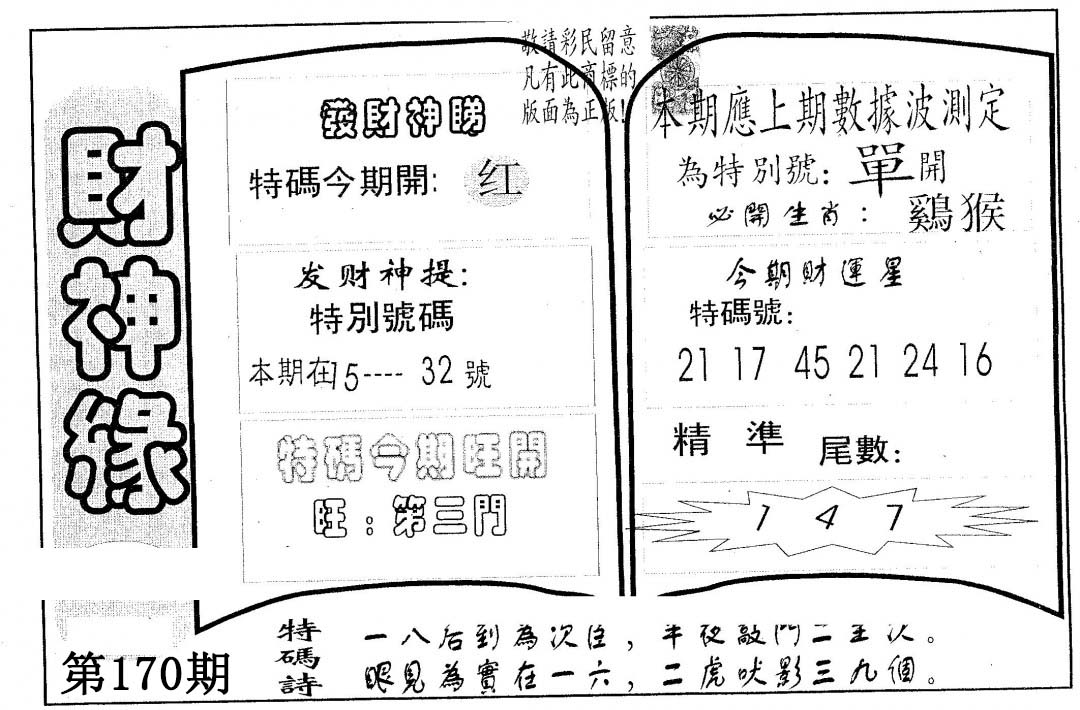 敬請彩民留意
凡有此商標的
版面為正版!
財神緣
發財神睇
特碼今期開: 红
发财神提:
特別號碼
本期在15---- 32 號
特碼今期旺開
旺:第三門
本期應上期數據波測定
為特別號: 單開
必開生肖: 鷄猴
今期財運星
特碼號:
21 17 45 21 24 16
精準 尾數:
1 4 7
第170期
特碼詩
一八后到為次住,半夜敲門二至次。
眼見為實在一六,二虎吠影三九個。